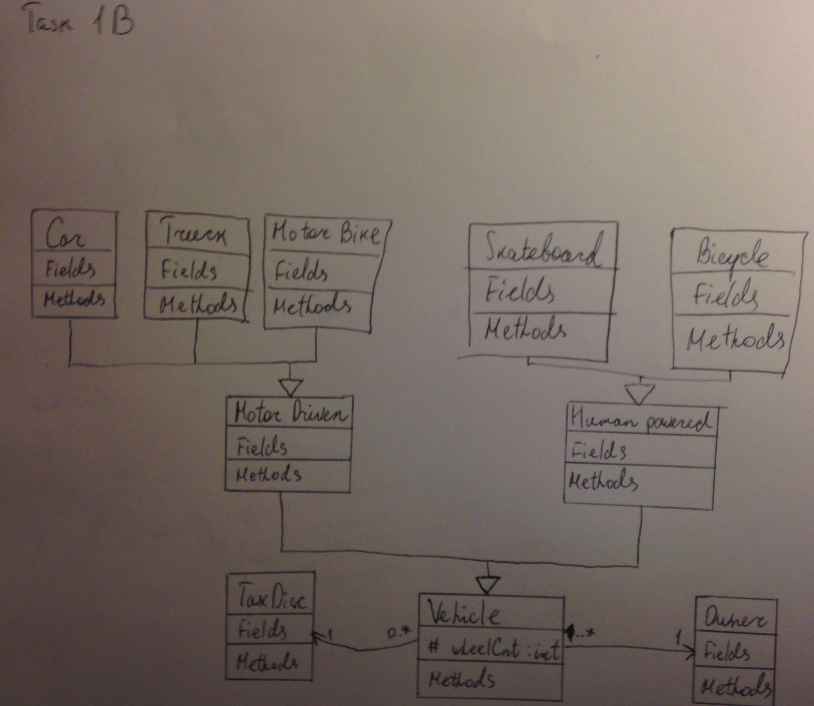 Task 1B
Car
Fields
Methods
Truck
Fields
Methods
Motor Bike
Fields
Methods
Skateboard
Fields
Methods
Bicycle
Fields
Methods
Motor Driven
Fields
Methods
Human powered
Fields
Methods
TaxDisc
Fields
Methods
1
0..*
Vehicle
# wheelCnt : int
Methods
..*
1
Owner
Fields
Methods